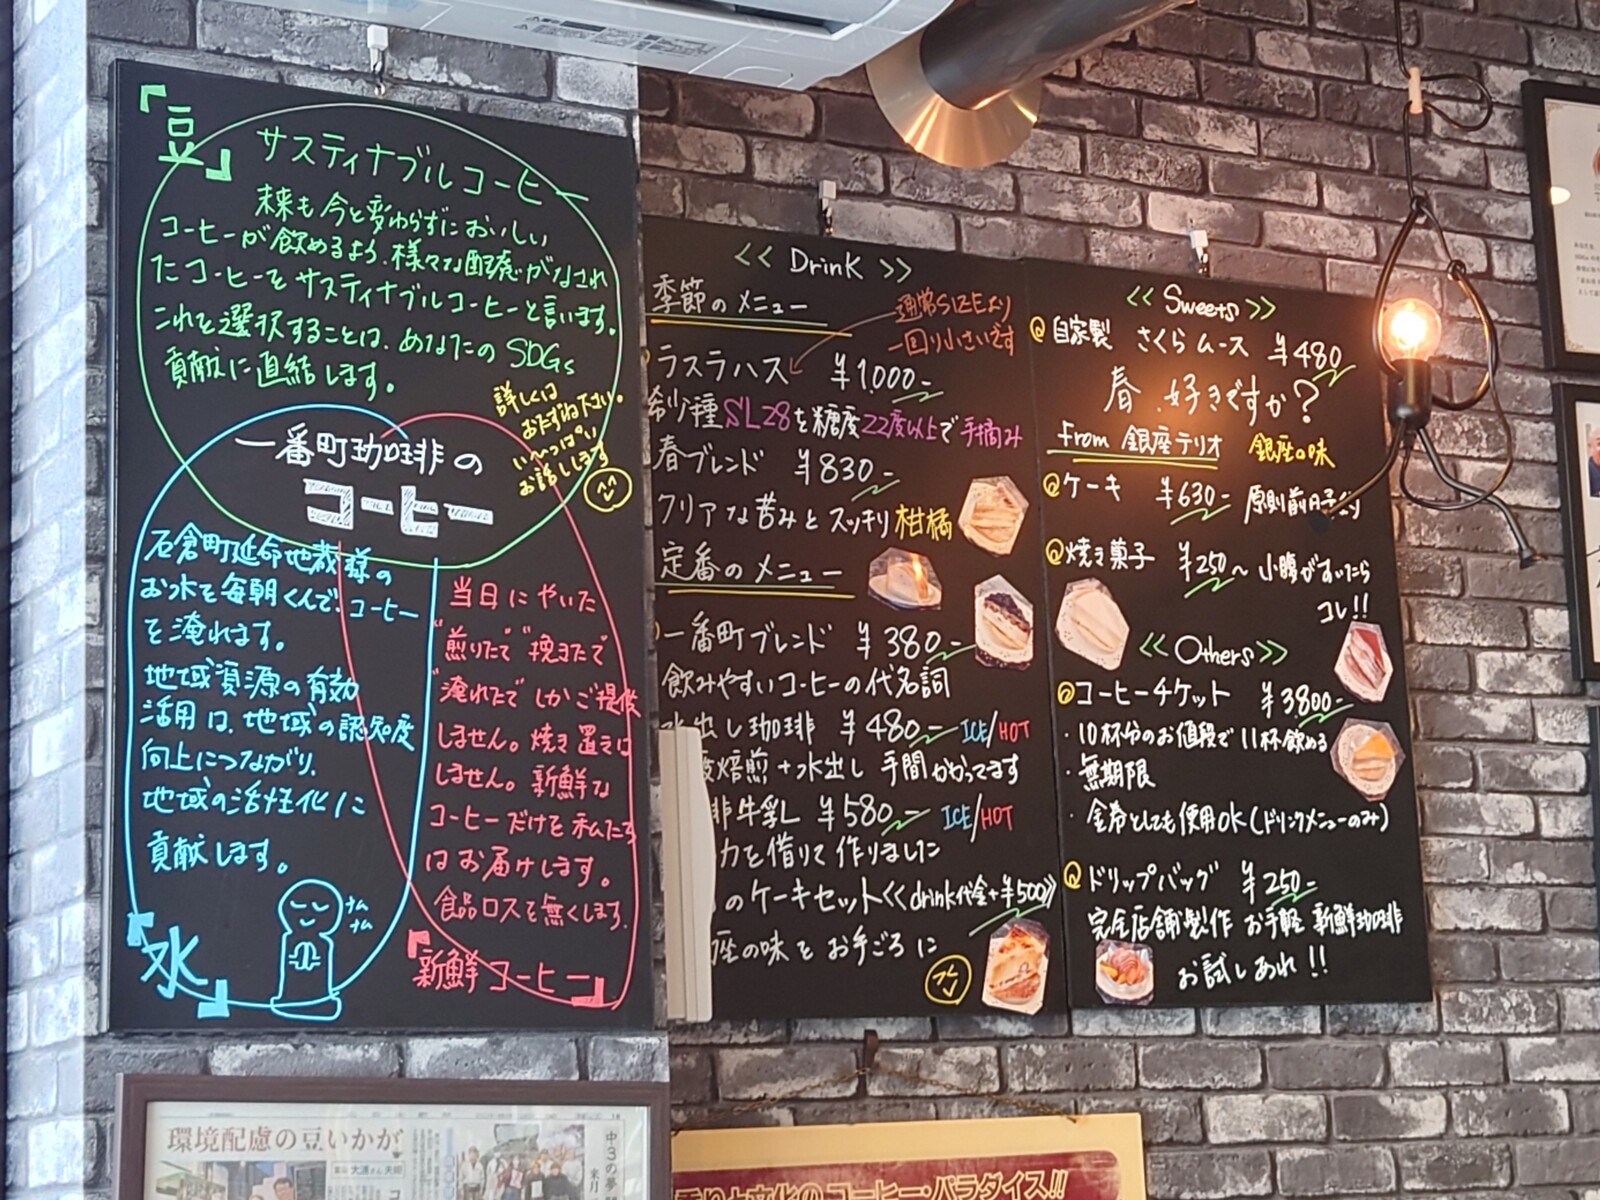 『豆』
サスティナブルコーヒー
未来も今と変わらずにおいしい
コーヒーが飲めるよう、様々な配慮がなされ
たコーヒーをサスティナブルコーヒーと言います。
これを選択することは、あなたのSDGs
貢献に直結します。
詳しくは
おたずね下さい。
い〜っぱい
お話しします
一番町珈琲の
コーヒー
石倉町延命地蔵様の
お水を毎朝くんで、コーヒー
を淹れます。
地域資源の有効
活用は、地域の認知度
向上につながり、
地域の活性化に
貢献します。
『水』
ナム
ナム
当日にやいた
"煎りたて" "挽きたて"
"淹れたて" しかご提供
しません。焼き置きは
しません。新鮮な
コーヒーだけを私たち
はお届けします。
食品ロスを無くします。
『新鮮コーヒー』
<< Drink >>
季節のメニュー
通常SIZEより
一回り小さいです
ラスラハス ¥1000-
希少種SL28を糖度22度以上で手摘み
春ブレンド ¥830-
クリアな苦みとスッキリ柑橘
定番のメニュー
一番町ブレンド ¥380-
飲みやすいコーヒーの代名詞
水出し珈琲 ¥480- ICE/HOT
焙煎+水出し 手間かかってます
牛乳 ¥580- ICE/HOT
力を借りて作りました
のケーキセット<<drink代金+¥500>>
座の味をお手ごろに
<< Sweets >>
自家製 さくらムース ¥480
春、好きですか?
from 銀座テリオ 銀座の味
ケーキ ¥630- 原則前日予約
焼き菓子 ¥250〜 小腹がすいたら
コレ!!
<< Others >>
コーヒーチケット ¥3800-
・10杯分のお値段で11杯飲める
・無期限
・金券としても使用OK(ドリンクメニューのみ)
ドリップバッグ ¥250-
完全店舗製作 お手軽 新鮮珈琲
お試しあれ!!
環境配慮の豆いかが
中3の夢
コーヒー・パラダイス!!